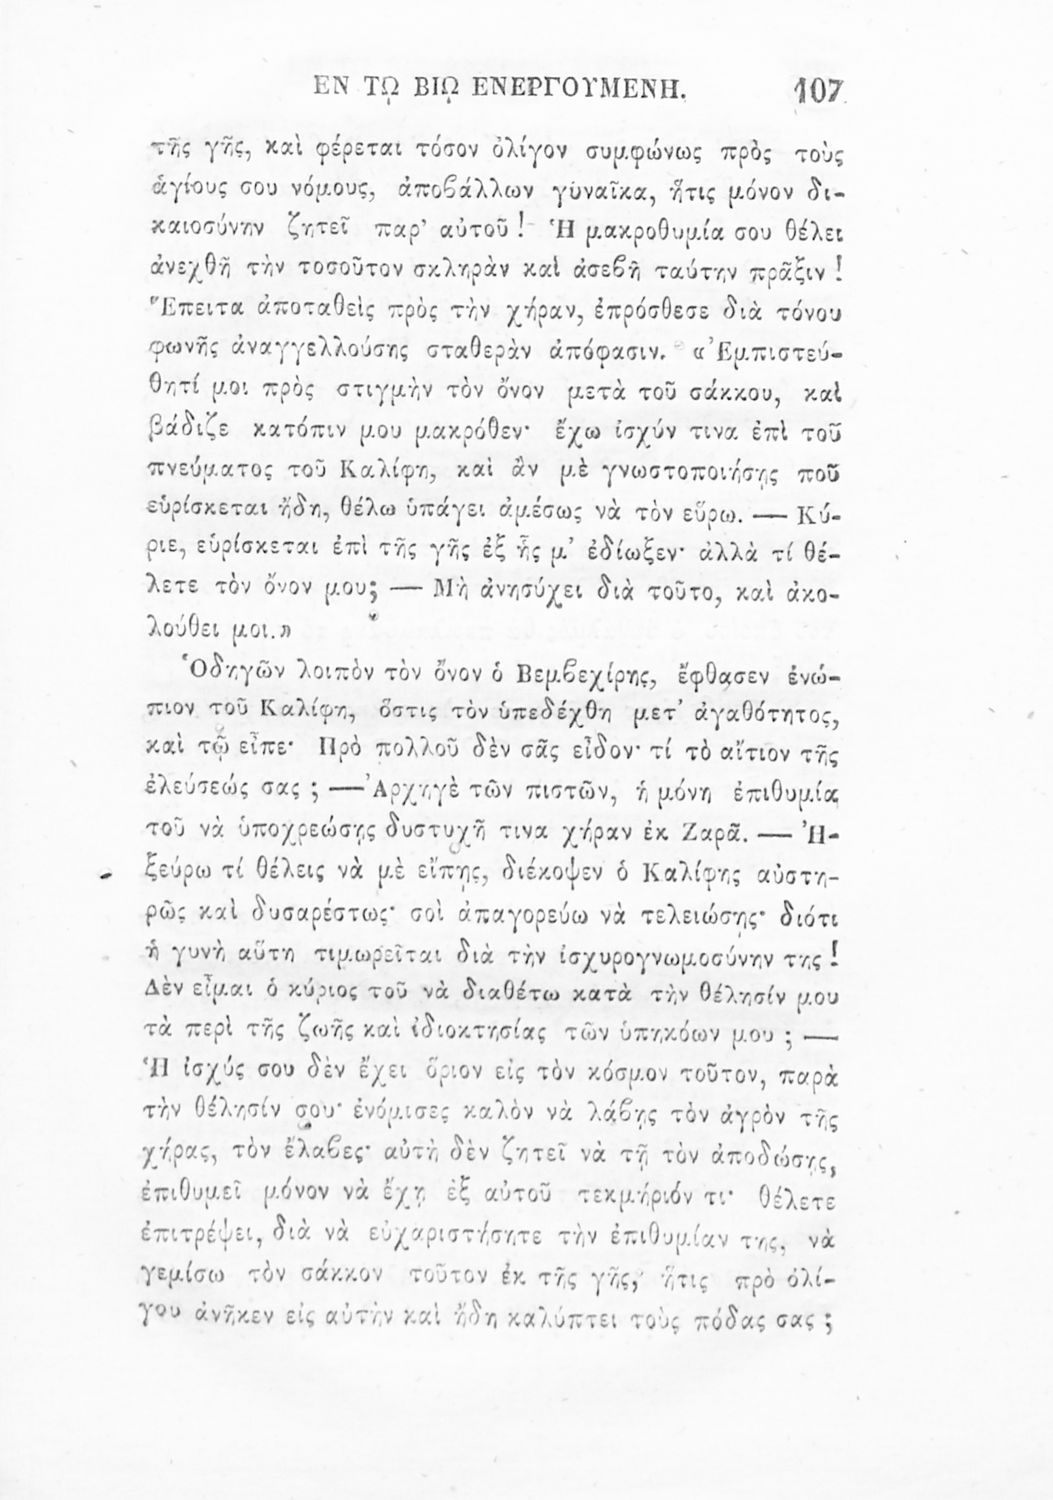 ΕΝ Τῼ ΒΙῼ ΕΝΕΡΓΟΥΜΕΝΗ. 107
τῆς γῆς, καὶ φέρεται τόσον ὀλίγον συμφώνως πρὸς τοὺς
ἁγίους σου νόμους, ἀποβάλλων γυναῖκα, ἥτις μόνον δι-
καιοσύνην ζητεῖ παρ’ αὐτοῦ! Ἡ μακροθυμία σου θέλει
ἀνεχθῆ τὴν τοσοῦτον σκληρὰν καὶ ἀσεβῆ ταύτην πρᾶξιν!
Ἔπειτα ἀποταθεὶς πρὸς τὴν χήραν, ἐπρόσθεσε διὰ τόνου
φωνῆς ἀναγγελλούσης σταθερὰν ἀπόφασιν. «Ἐμπιστεύ-
θητί μοι πρὸς στιγμὴν τὸν ὄνον μετὰ τοῦ σάκκου, καὶ
βάδιζε κατόπιν μου μακρόθεν· ἔχω ἰσχύν τινα ἐπὶ τοῦ
πνεύματος τοῦ Καλίφη, καὶ ἂν μὲ γνωστοποιήσῃς ποῦ
εὑρίσκεται ἤδη, θέλω ὑπάγει ἀμέσως νὰ τὸν εὕρω. — Κύ-
ριε, εὑρίσκεται ἐπὶ τῆς γῆς ἐξ ἧς μ’ ἐδίωξεν· ἀλλὰ τί θέ-
λετε τὸν ὄνον μου; — Μὴ ἀνησύχει διὰ τοῦτο, καὶ ἀκο-
λούθει μοι.»
Ὁδηγῶν λοιπὸν τὸν ὄνον ὁ Βεμβεχίρης, ἔφθασεν ἐνώ-
πιον τοῦ Καλίφη, ὅστις τὸν ὑπεδέχθη μετ’ ἀγαθότητος,
καὶ τῷ εἶπε· Πρὸ πολλοῦ δὲν σᾶς εἶδον· τί τὸ αἴτιον τῆς
ἐλεύσεώς σας; — Ἀρχηγὲ τῶν πιστῶν, ἡ μόνη ἐπιθυμία
τοῦ νὰ ὑποχρεώσῃς δυστυχῆ τινα χήραν ἐκ Ζαρᾶ. — Ἠ-
ξεύρω τί θέλεις νὰ μὲ εἴπῃς, διέκοψεν ὁ Καλίφης αὐστη-
ρῶς καὶ δυσαρέστως· σοὶ ἀπαγορεύω νὰ τελειώσῃς· διότι
ἡ γυνὴ αὕτη τιμωρεῖται διὰ τὴν ἰσχυρογνωμοσύνην της!
Δὲν εἶμαι ὁ κύριος τοῦ νὰ διαθέτω κατὰ τὴν θέλησίν μου
τὰ περὶ τῆς ζωῆς καὶ ἰδιοκτησίας τῶν ὑπηκόων μου; —
Ἡ ἰσχύς σου δὲν ἔχει ὅριον εἰς τὸν κόσμον τοῦτον, παρὰ
τὴν θέλησίν σου· ἐνόμισες καλὸν νὰ λάβῃς τὸν ἀγρὸν τῆς
χήρας, τὸν ἔλαβες· αὐτὴ δὲν ζητεῖ νὰ τῇ τὸν ἀποδώσῃς,
ἐπιθυμεῖ μόνον νὰ ἔχῃ ἐξ αὐτοῦ τεκμήριόν τι· θέλετε
ἐπιτρέψει, διὰ νὰ εὐχαριστήσητε τὴν ἐπιθυμίαν της, νὰ
γεμίσω τὸν σάκκον τοῦτον ἐκ τῆς γῆς, ἥτις πρὸ ὀλί-
γου ἀνῆκεν εἰς αὐτὴν καὶ ἤδη καλύπτει τοὺς πόδας σας;